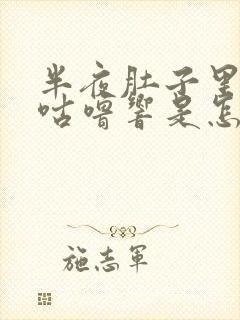 半夜肚子里
咕噜响是怎
施志军